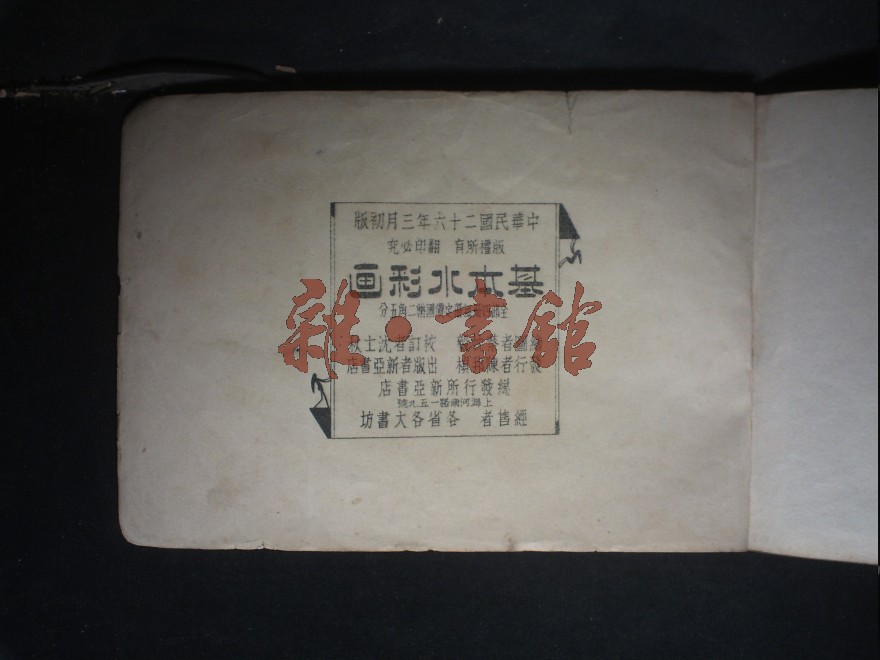 中華民國二十六年三月初版
版權所有 翻印必究
基本水彩画
國幣二角五分
校訂者沈士秋
發行者陳邦楨 出版者新亞書店
總發行所新亞書店
上海河南路一五九號
經售者 各省各大書坊
雜·書館